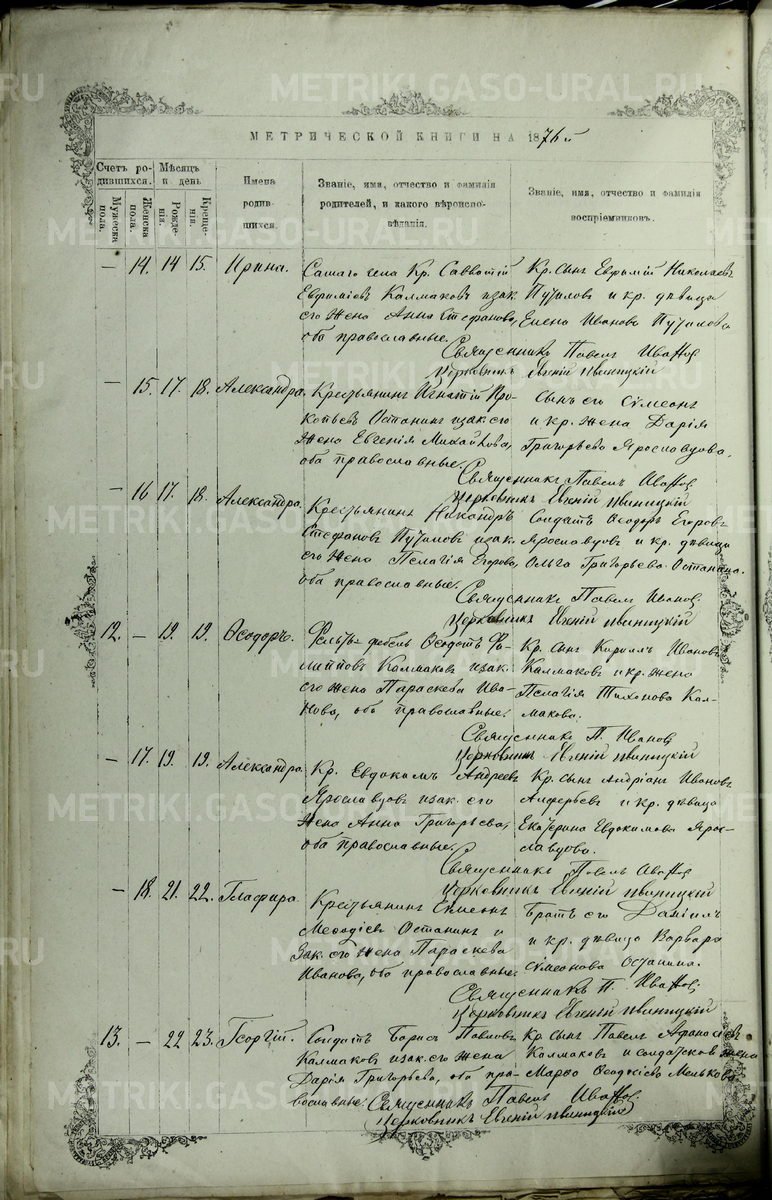 METRIKI.GASO-URAL.RU
МЕТРИЧЕСКОЙ КНИГИ НА 1876й
Счетъ родившихся.
Мѣсяцъ и день
Имена родившихся.
Званіе, имя, отчество и фамилія родителей, и какого вѣроисповѣданія.
Званіе, имя, отчество и фамилія воспріемниковъ.
Мужеска пола.
Женска пола.
Рожденія.
Крещенія.
— 14. 14 15. Ирина. Самаго села Кр. Савватій Кр. сынъ Евфимій Николаевъ
Евфиміевъ Калмаковъ изак. Путиловъ и кр. дѣвица
его жена Анна Стефанова, Елена Иванова Путилова
оба православные.
Священникъ Павелъ Ивановъ
Церковникъ Евгеній
— 15. 17. 18. Александра. Крестьянинъ Игнатій Про- Сынъ его Сумеонъ
копьевъ Останинъ изак. его и кр. жена Дарія
жена Евгенія Михайлова, Григорьева Ярославцова.
оба православные.
Священникъ Павелъ Ивановъ
Церковникъ Евгеній
— 16 17. 18. Александра. Крестьянинъ Никандръ Солдатъ Ѳеодоръ Егоровъ
Стефановъ Путиловъ изак. Ярославцовъ и кр. дѣвица
его жена Пелагія Егорова, Ольга Григорьева Останина.
оба православные.
Священникъ Павелъ Ивановъ
Церковникъ Евгеній
12. — 19. 19. Ѳеодоръ. Фельдфебель Ѳеодотъ Фи- Кр. сынъ Кириллъ Ивановъ
липповъ Калмаковъ изак. Калмаковъ и кр. жена
его жена Параскева Ива- Пелагія Тихонова Кал-
нова, оба православные. макова.
Священникъ П. Ивановъ
Церковникъ Евгеній
— 17. 19. 19. Александра. Кр. Евдокимъ Андреевъ Кр. сынъ Андріанъ Ивановъ
Ярославцовъ изак. его Алферьевъ и кр. дѣвица
жена Анна Григорьева, Екатерина Евдокимова Ярос-
оба православные. лавцова.
Священникъ Павелъ Ивановъ
Церковникъ Евгеній
— 18. 21. 22. Глафира. Крестьянинъ Симеонъ Братъ его Даніилъ
Меѳодіевъ Останинъ и и кр. дѣвица Варвара
Зак. его жена Параскева Сумеонова Останина.
Иванова, оба православные.
Священникъ П. Ивановъ
Церковникъ Евгеній
13. — 22 23. Георгій. Солдатъ Борисъ Павловъ Кр. сынъ Павелъ Афанасьевъ
Калмаковъ изак. его жена Калмаковъ и солдатская жена
Дарія Григорьева, оба пра- Марѳа Ѳеодосіева Мелькова
вославные.
Священникъ Павелъ Ивановъ
Церковникъ Евгеній